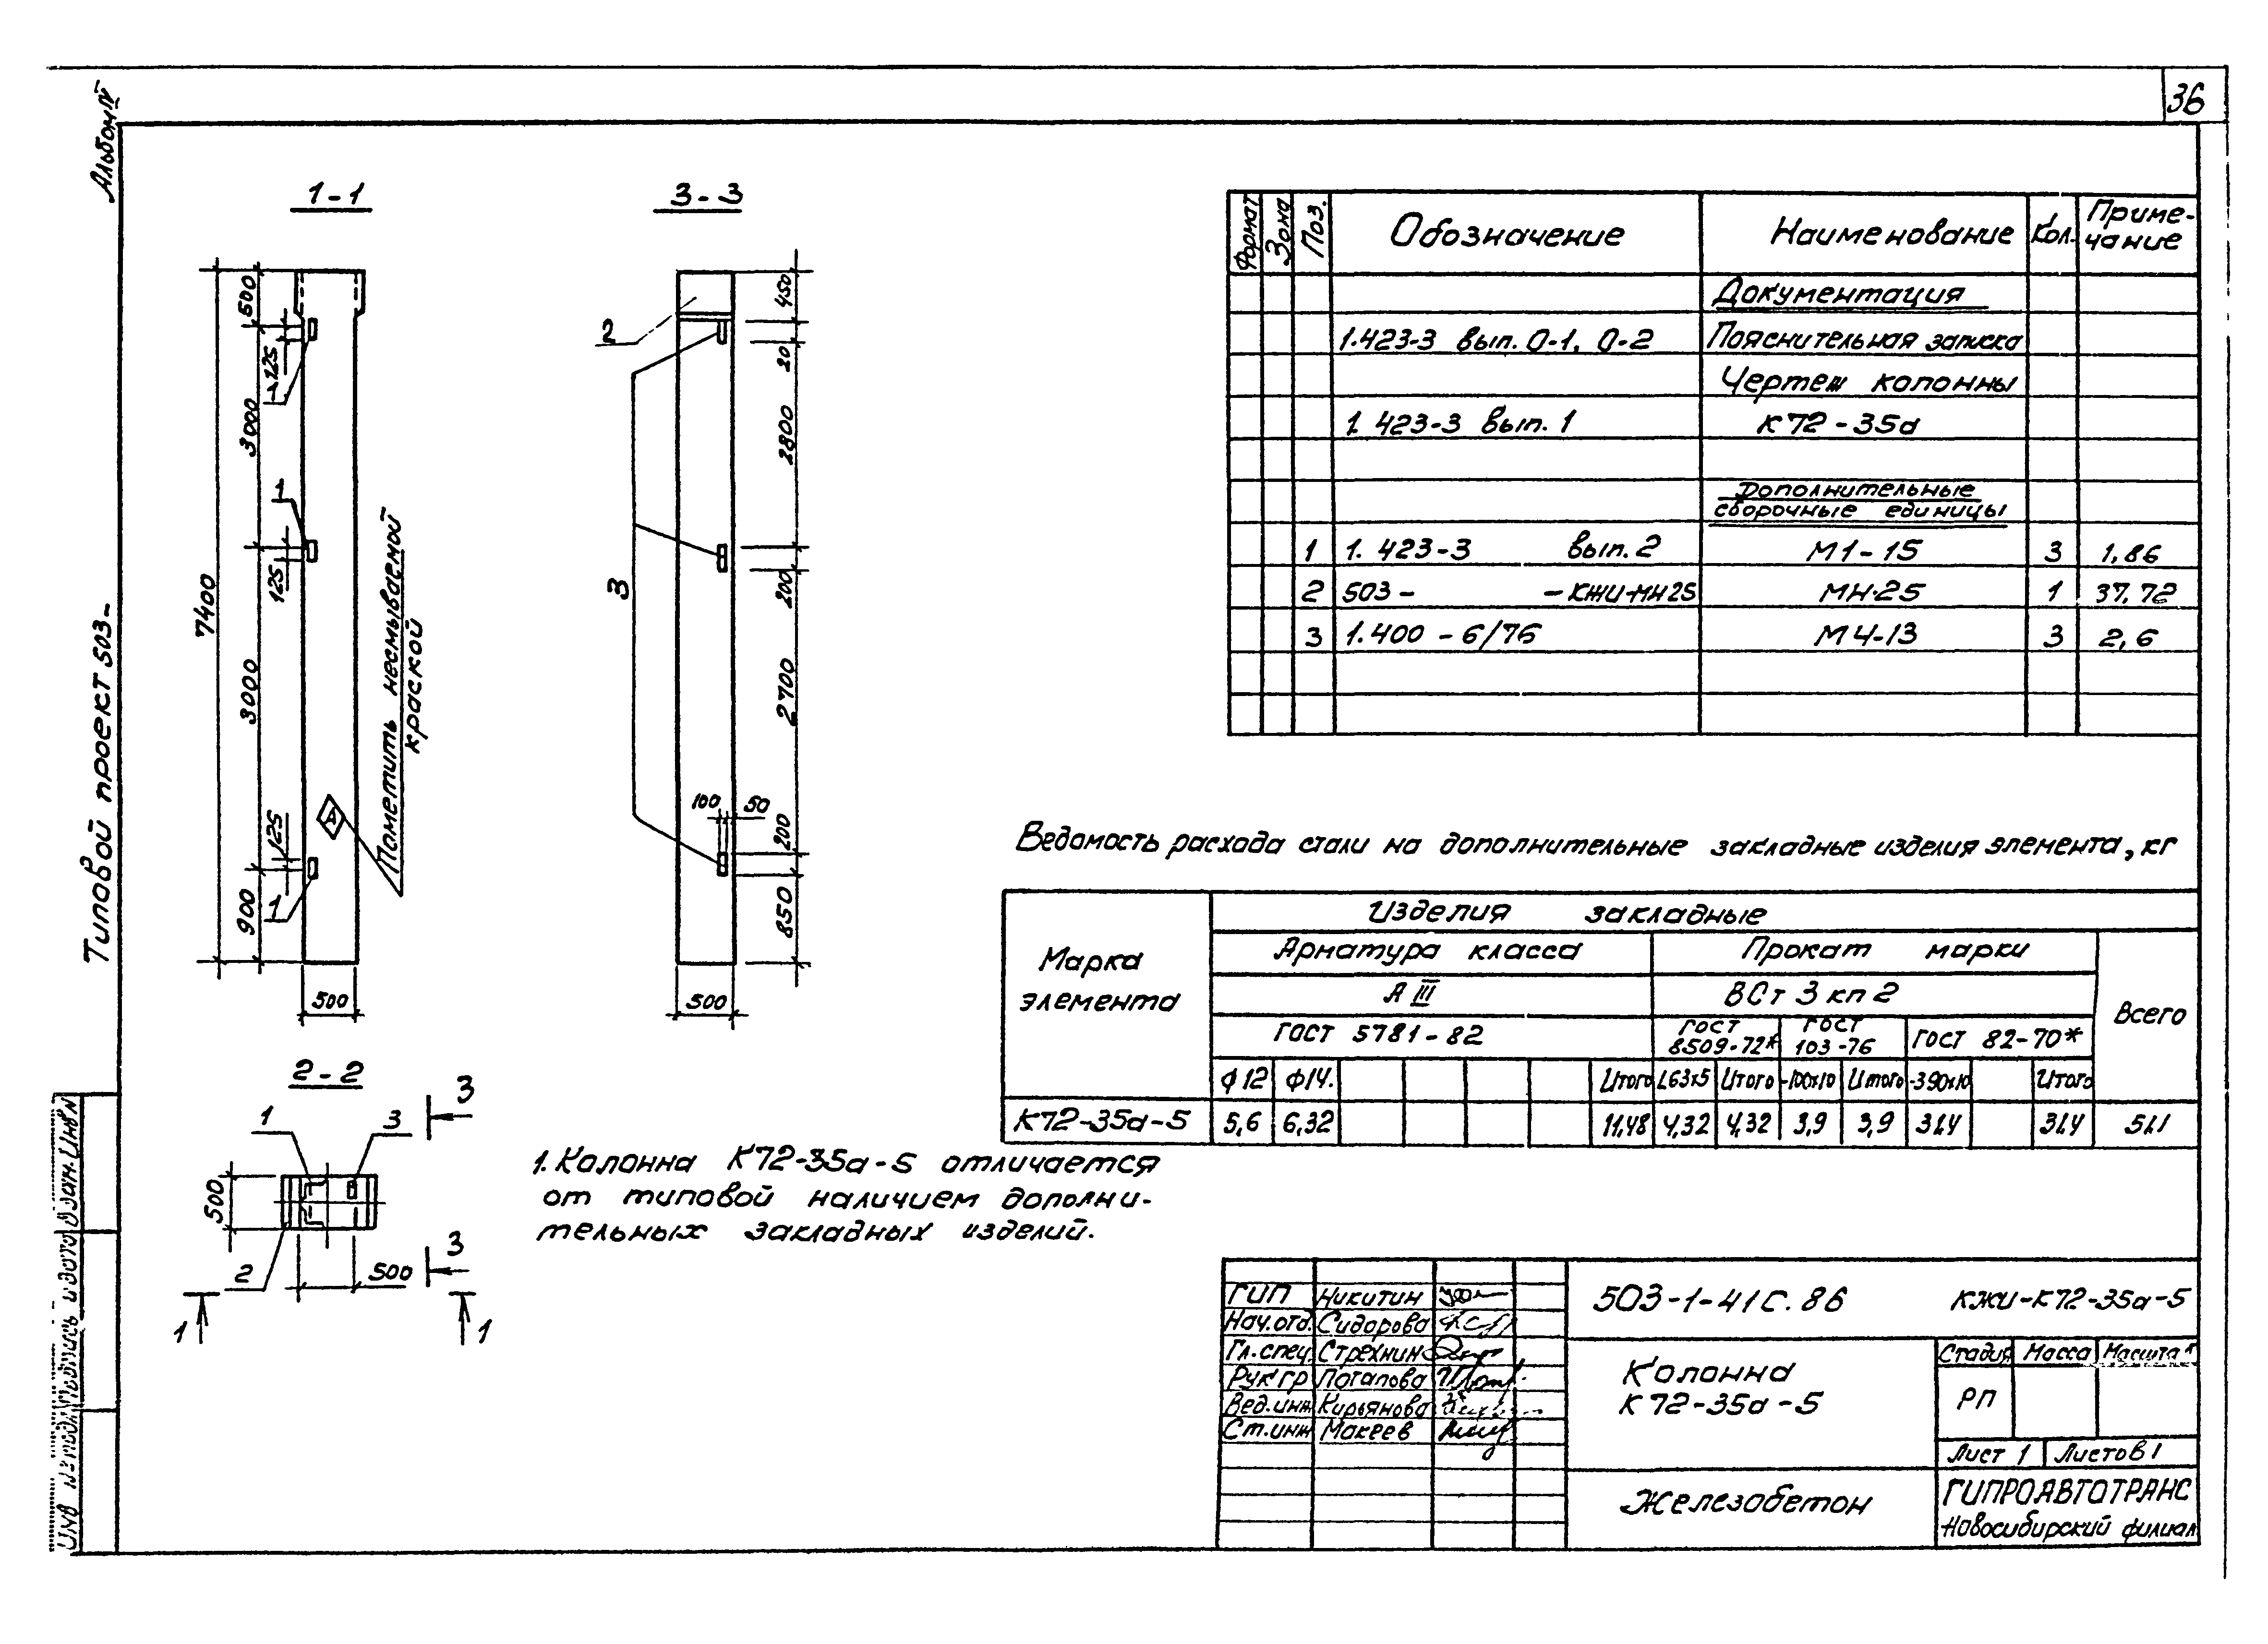 36
Альбом IV
Типовой проект 503-
1-1
3-3
500
125
3000
125
3000
125
900
7400
500
1
1
1
А
Пометить несмываемой
краской
450
20
2800
200
2700
200
850
100
50
500
2
3
2-2
1
3
3
500
2
500
3
1
1
1. Колонна К72-35а-5 отличается
от типовой наличием дополни-
тельных закладных изделий.
Формат Зона Поз. Обозначение Наименование Кол. Приме-
чание
Документация
1.423-3 вып. 0-1, 0-2 Пояснительная записка
Чертеж колонны
1.423-3 вып. 1 К72-35а
Дополнительные
сборочные единицы
1 1.423-3 вып. 2 М1-15 3 1,86
2 503- -КЖИ-МН25 МН-25 1 37,72
3 1.400-6/76 М4-13 3 2,6
Ведомость расхода стали на дополнительные закладные изделия элемента, кг
Марка
элемента
Изделия закладные
Арматура класса Прокат марки
А III ВСт 3 кп 2
Всего
ГОСТ 5781-82 ГОСТ
8509-72* ГОСТ
103-76 ГОСТ 82-70*
Ф12 Ф14. Итого L63х5 Итого -100х10 Итого -390х10 Итого
К72-35а-5 5,6 6,32 11,48 4,32 4,32 3,9 3,9 31.4 31.4 51.1
ГИП Никитин
Нач.отд. Сидорова
Гл.спец. Стрехнин
Рук гр Потапова
Вед.инж Кирьянова
Ст.инж Макеев
503-1-41с.86 КЖИ-К72-35а-5
Колонна
К72-35а-5
Стадия Масса Масштаб
РП
Лист 1 Листов 1
Железобетон
ГИПРОАВТОТРАНС
Новосибирский филиал